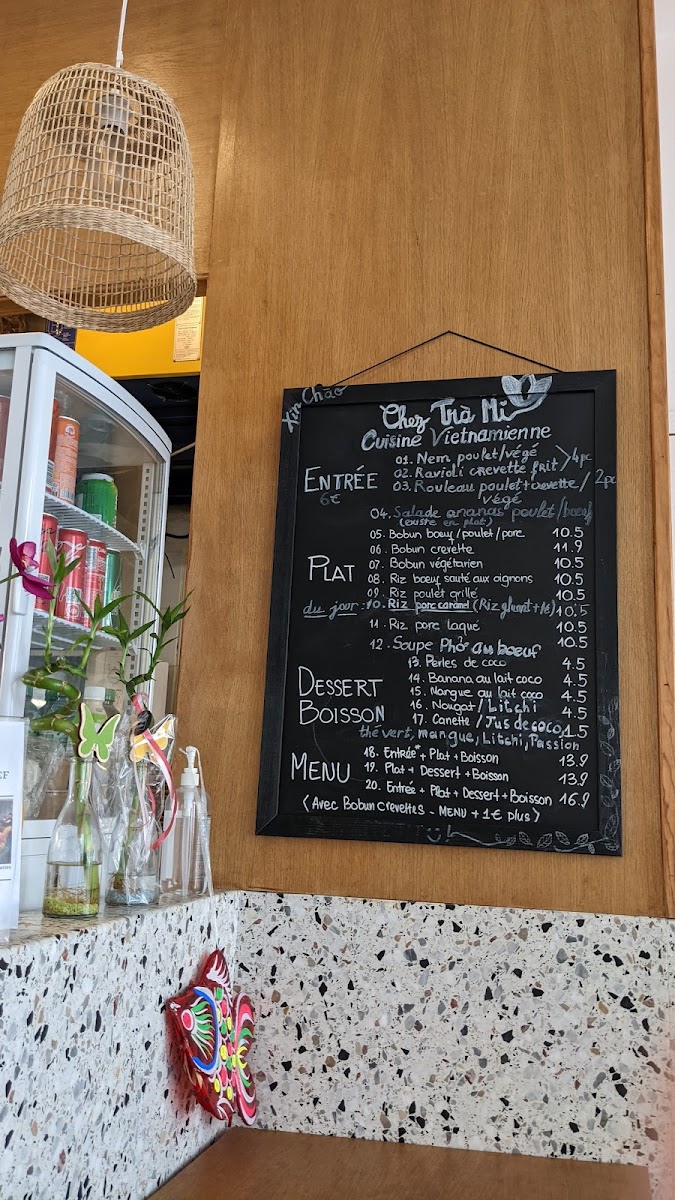 Xin Chào
Chez Trà Mi
Cuisine Vietnamienne
ENTRÉE
6€
01. Nem poulet/végé
02. Ravioli crevette frit / 4pc
03. Rouleau poulet+crevette/ 2pc
végé
04. Salade ananas poulet/boeuf
(existe en plat)
PLAT
05. Bobun boeuf/poulet/porc 10.5
06. Bobun crevette 11.9
07. Bobun végétarien 10.5
08. Riz boeuf sauté aux oignons 10.5
09. Riz poulet grillé 10.5
du jour: 10. Riz porc caramel (Riz gluant+1€) 10.5
11. Riz porc laqué 10.5
12. Soupe Phở au boeuf 10.5
DESSERT
BOISSON
13. Perles de coco 4.5
14. Banana au lait coco 4.5
15. Mangue au lait coco 4.5
16. Nougat / Litchi 4.5
17. Canette / Jus de coco 1.5
thé vert, mangue, Litchi, Passion
MENU
18. Entrée + Plat + Boisson 13.9
19. Plat + Dessert + Boisson 13.9
20. Entrée + Plat + Dessert + Boisson 16.9
(Avec Bobun crevettes - MENU + 1€ plus)